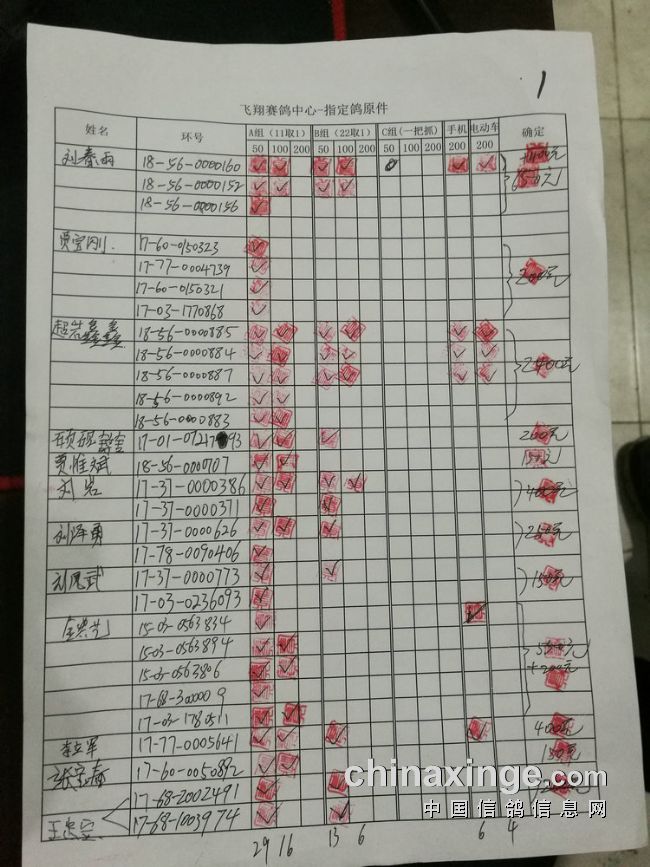 1
飞翔赛鸽中心-指定鸽原件
姓名 环号 A组（11取1） B组（22取1） C组(一把抓) 手机 电动车 确定
50 100 200 50 100 200 50 100 200 200 200
刘春雨 18-56-0000160
18-56-0000152
18-56-0000156
贾宝刚 17-60-0150323
17-77-0004739
17-60-0150321
17-03-1770868
18-56-0000885
18-56-0000884
18-56-0000887 2400元
18-56-0000892
18-56-0000883
17-01-0 93
贾惟斌 18-56-0000707
刘岩 17-37-0000386
17-37-0000371
刘泽勇 17-37-0000626
17-78-0090406
刘凤武 17-37-0000773 150元
17-03-0236093
15-03-0563834
15-03-0563894
15-03-0563806
17-68-300000 9
17-03-1780511
李立军 17-77-0005641 400元
张宝春 17-60-0050892 150元
17-68-2002491
17-68-1003974
29 16 13 6 6 4
chinaxinge.com
中国信鸽信息网